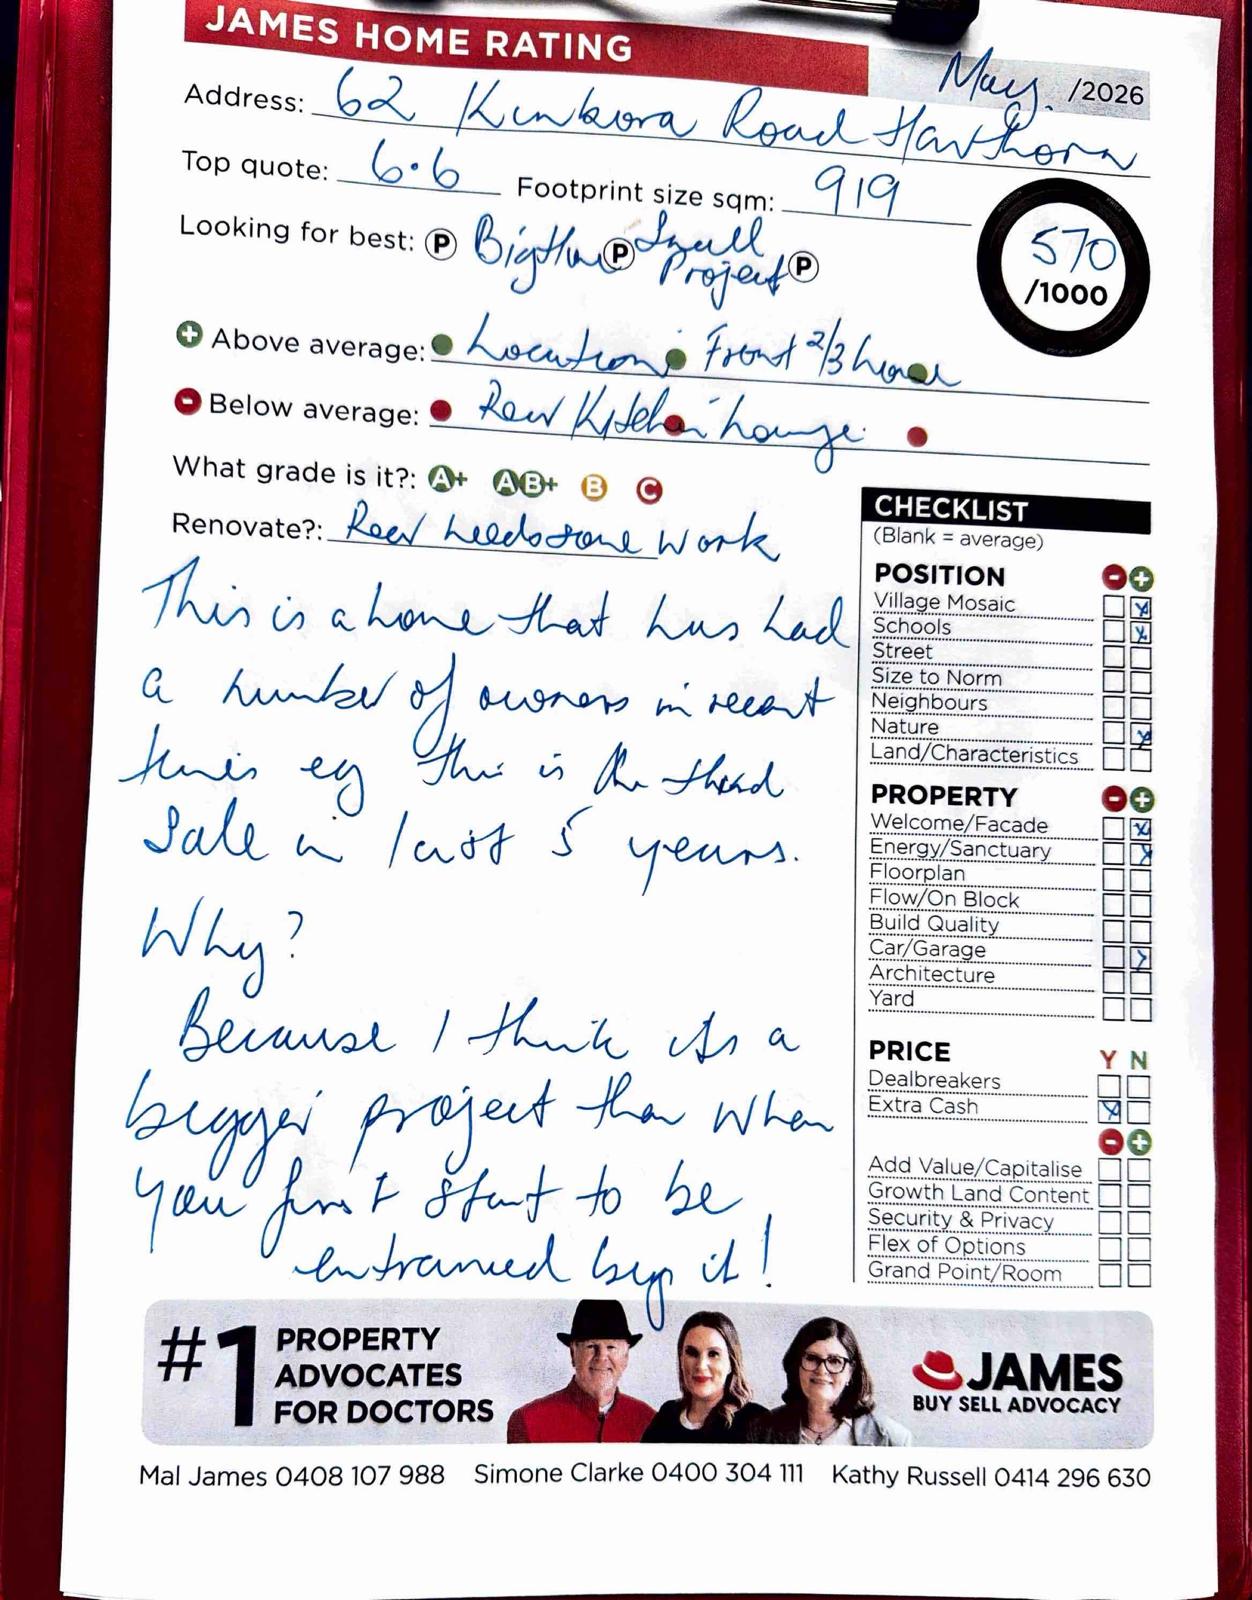 JAMES HOME RATING
May. /2026
Address: 62 Kinkora Road Hawthorn
Top quote: 6.6 Footprint size sqm: 919
570
/1000
Looking for best: P Big P Small Project P
+ Above average: Location Front 2/3 house
- Below average: Rear Kitchen Lounge
What grade is it?: A+ AB+ B C
Renovate?: Rear needs some work
This is a home that has had
a number of owners in recent
times eg this is the third
Sale in last 5 years.
Why?
Because I think its a
bigger project than when
you first start to be
entranced by it!
CHECKLIST
(Blank = average)
POSITION - +
Village Mosaic
Schools
Street
Size to Norm
Neighbours
Nature
Land/Characteristics
PROPERTY - +
Welcome/Facade
Energy/Sanctuary
Floorplan
Flow/On Block
Build Quality
Car/Garage
Architecture
Yard
PRICE Y N
Dealbreakers
Extra Cash
- +
Add Value/Capitalise
Growth Land Content
Security & Privacy
Flex of Options
Grand Point/Room
#1 PROPERTY
ADVOCATES
FOR DOCTORS
JAMES
BUY SELL ADVOCACY
Mal James 0408 107 988 Simone Clarke 0400 304 111 Kathy Russell 0414 296 630